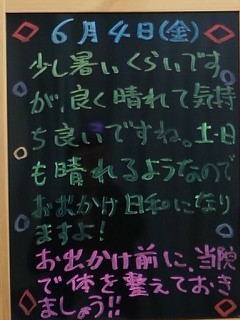 6月4日(金)
少し暑いくらいです
が、良く晴れて気持
ち良いですね。土・日
も晴れるようなので
お出かけ日和になり
ますよ!
お出かけ前に、当院
で体を整えておき
ましょう!!